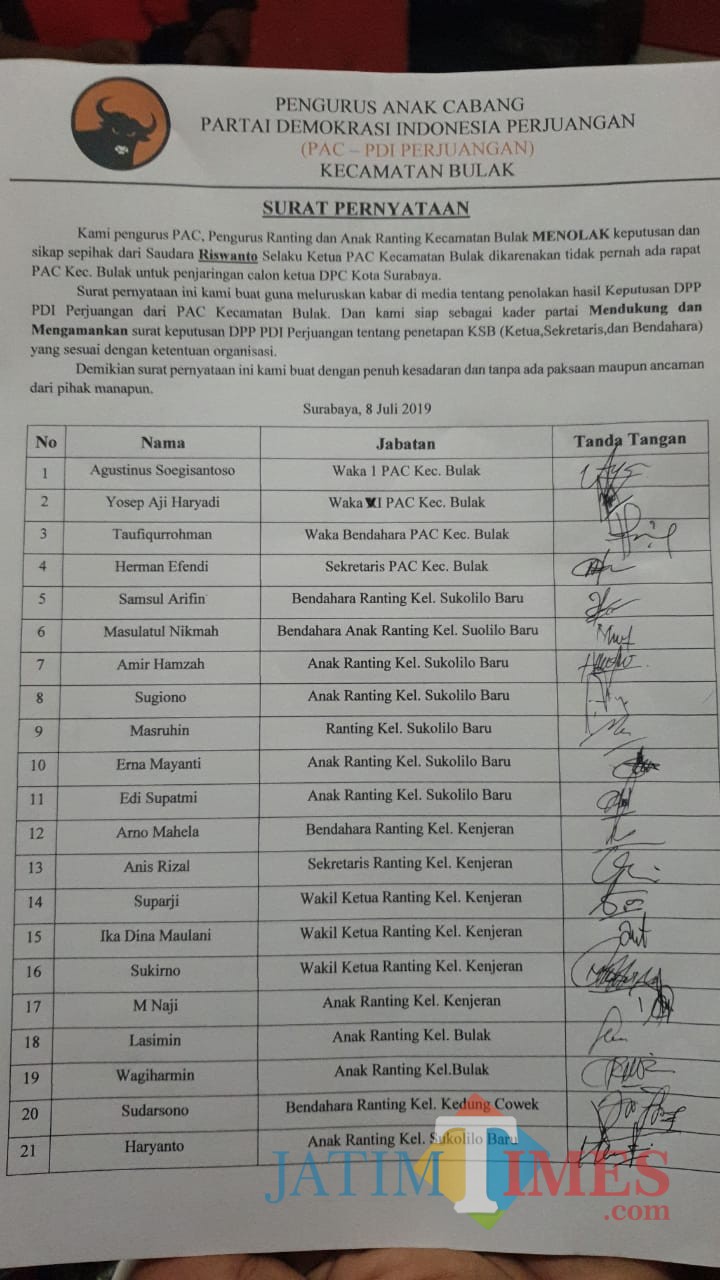 PENGURUS ANAK CABANG
PARTAI DEMOKRASI INDONESIA PERJUANGAN
(PAC – PDI PERJUANGAN)
KECAMATAN BULAK
SURAT PERNYATAAN
Kami pengurus PAC, Pengurus Ranting dan Anak Ranting Kecamatan Bulak MENOLAK keputusan dan
sikap sepihak dari Saudara Riswanto Selaku Ketua PAC Kecamatan Bulak dikarenakan tidak pernah ada rapat
PAC Kec. Bulak untuk penjaringan calon ketua DPC Kota Surabaya.
Surat pernyataan ini kami buat guna meluruskan kabar di media tentang penolakan hasil Keputusan DPP
PDI Perjuangan dari PAC Kecamatan Bulak. Dan kami siap sebagai kader partai Mendukung dan
Mengamankan surat keputusan DPP PDI Perjuangan tentang penetapan KSB (Ketua,Sekretaris,dan Bendahara)
yang sesuai dengan ketentuan organisasi.
Demikian surat pernyataan ini kami buat dengan penuh kesadaran dan tanpa ada paksaan maupun ancaman
dari pihak manapun.
Surabaya, 8 Juli 2019
No Nama Jabatan Tanda Tangan
1 Agustinus Soegisantoso Waka 1 PAC Kec. Bulak
2 Yosep Aji Haryadi Waka I PAC Kec. Bulak
3 Taufiqurrohman Waka Bendahara PAC Kec. Bulak
4 Herman Efendi Sekretaris PAC Kec. Bulak
5 Samsul Arifin Bendahara Ranting Kel. Sukolilo Baru
6 Masulatul Nikmah Bendahara Anak Ranting Kel. Suolilo Baru
7 Amir Hamzah Anak Ranting Kel. Sukolilo Baru
8 Sugiono Anak Ranting Kel. Sukolilo Baru
9 Masruhin Ranting Kel. Sukolilo Baru
10 Erna Mayanti Anak Ranting Kel. Sukolilo Baru
11 Edi Supatmi Anak Ranting Kel. Sukolilo Baru
12 Arno Mahela Bendahara Ranting Kel. Kenjeran
13 Anis Rizal Sekretaris Ranting Kel. Kenjeran
14 Suparji Wakil Ketua Ranting Kel. Kenjeran
15 Ika Dina Maulani Wakil Ketua Ranting Kel. Kenjeran
16 Sukirno Wakil Ketua Ranting Kel. Kenjeran
17 M Naji Anak Ranting Kel. Kenjeran
18 Lasimin Anak Ranting Kel. Bulak
19 Wagiharmin Anak Ranting Kel.Bulak
20 Sudarsono Bendahara Ranting Kel. Kedung Cowek
21 Haryanto Anak Ranting Kel. Sukolilo Baru
JATIMTIMES
.com